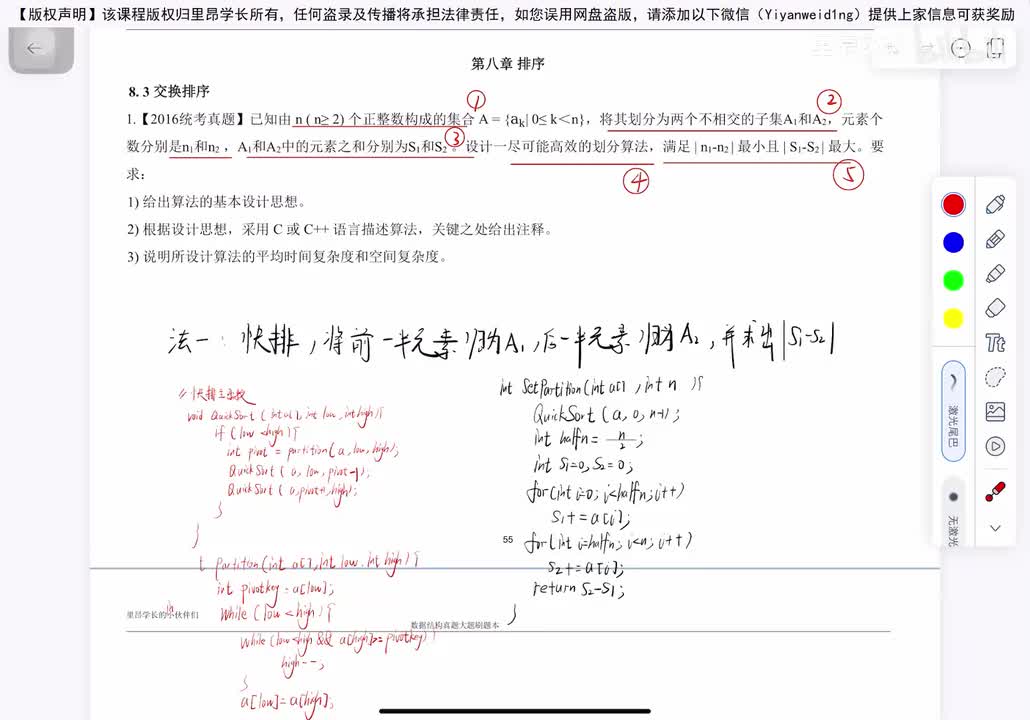 【版权声明】该课程版权归里昂学长所有，任何盗录及传播将承担法律责任，如您误用网盘盗版，请添加以下微信（Yiyanweid1ng）提供上家信息可获奖励
第八章 排序
8.3 交换排序
①
②
1.【2016统考真题】已知由 n ( n≥ 2) 个正整数构成的集合 A = {aₖ| 0≤ k＜n}，将其划分为两个不相交的子集A₁和A₂，元素个
③
数分别是n₁和n₂，A₁和A₂中的元素之和分别为S₁和S₂。设计一尽可能高效的划分算法，满足 | n₁-n₂ | 最小且 | S₁-S₂ | 最大。要
④
⑤
求：
1) 给出算法的基本设计思想。
2) 根据设计思想，采用 C 或 C++ 语言描述算法，关键之处给出注释。
3) 说明所设计算法的平均时间复杂度和空间复杂度。
法一：快排，将前一半元素归为A₁，后一半元素归为A₂，并求出|S₁-S₂|
// 快排主函数
void QuickSort (int a[], int low, int high){
if (low < high){
int pivot = partition(a, low, high);
QuickSort ( a, low, pivot-1);
QuickSort ( a, pivot+1, high);
}
}
t partition(int a[], int low, int high){
int pivotkey = a[low];
while (low < high){
while (low <high && a[high]>= pivotkey){
high--;
}
a[low]=a[high];
int SetPartition(int a[], int n ){
QuickSort (a, 0, n-1);
int halfn= n/2;
int S1=0, S2=0;
for(int i=0; i<halfn; i++)
S1+=a[i];
for(int i=halfn; i<n; i++)
S2+=a[i];
return S2-S1;
}
55
里昂学长的小伙伴们
数据结构真题大题刷题本
Tt
激光尾巴
无激光